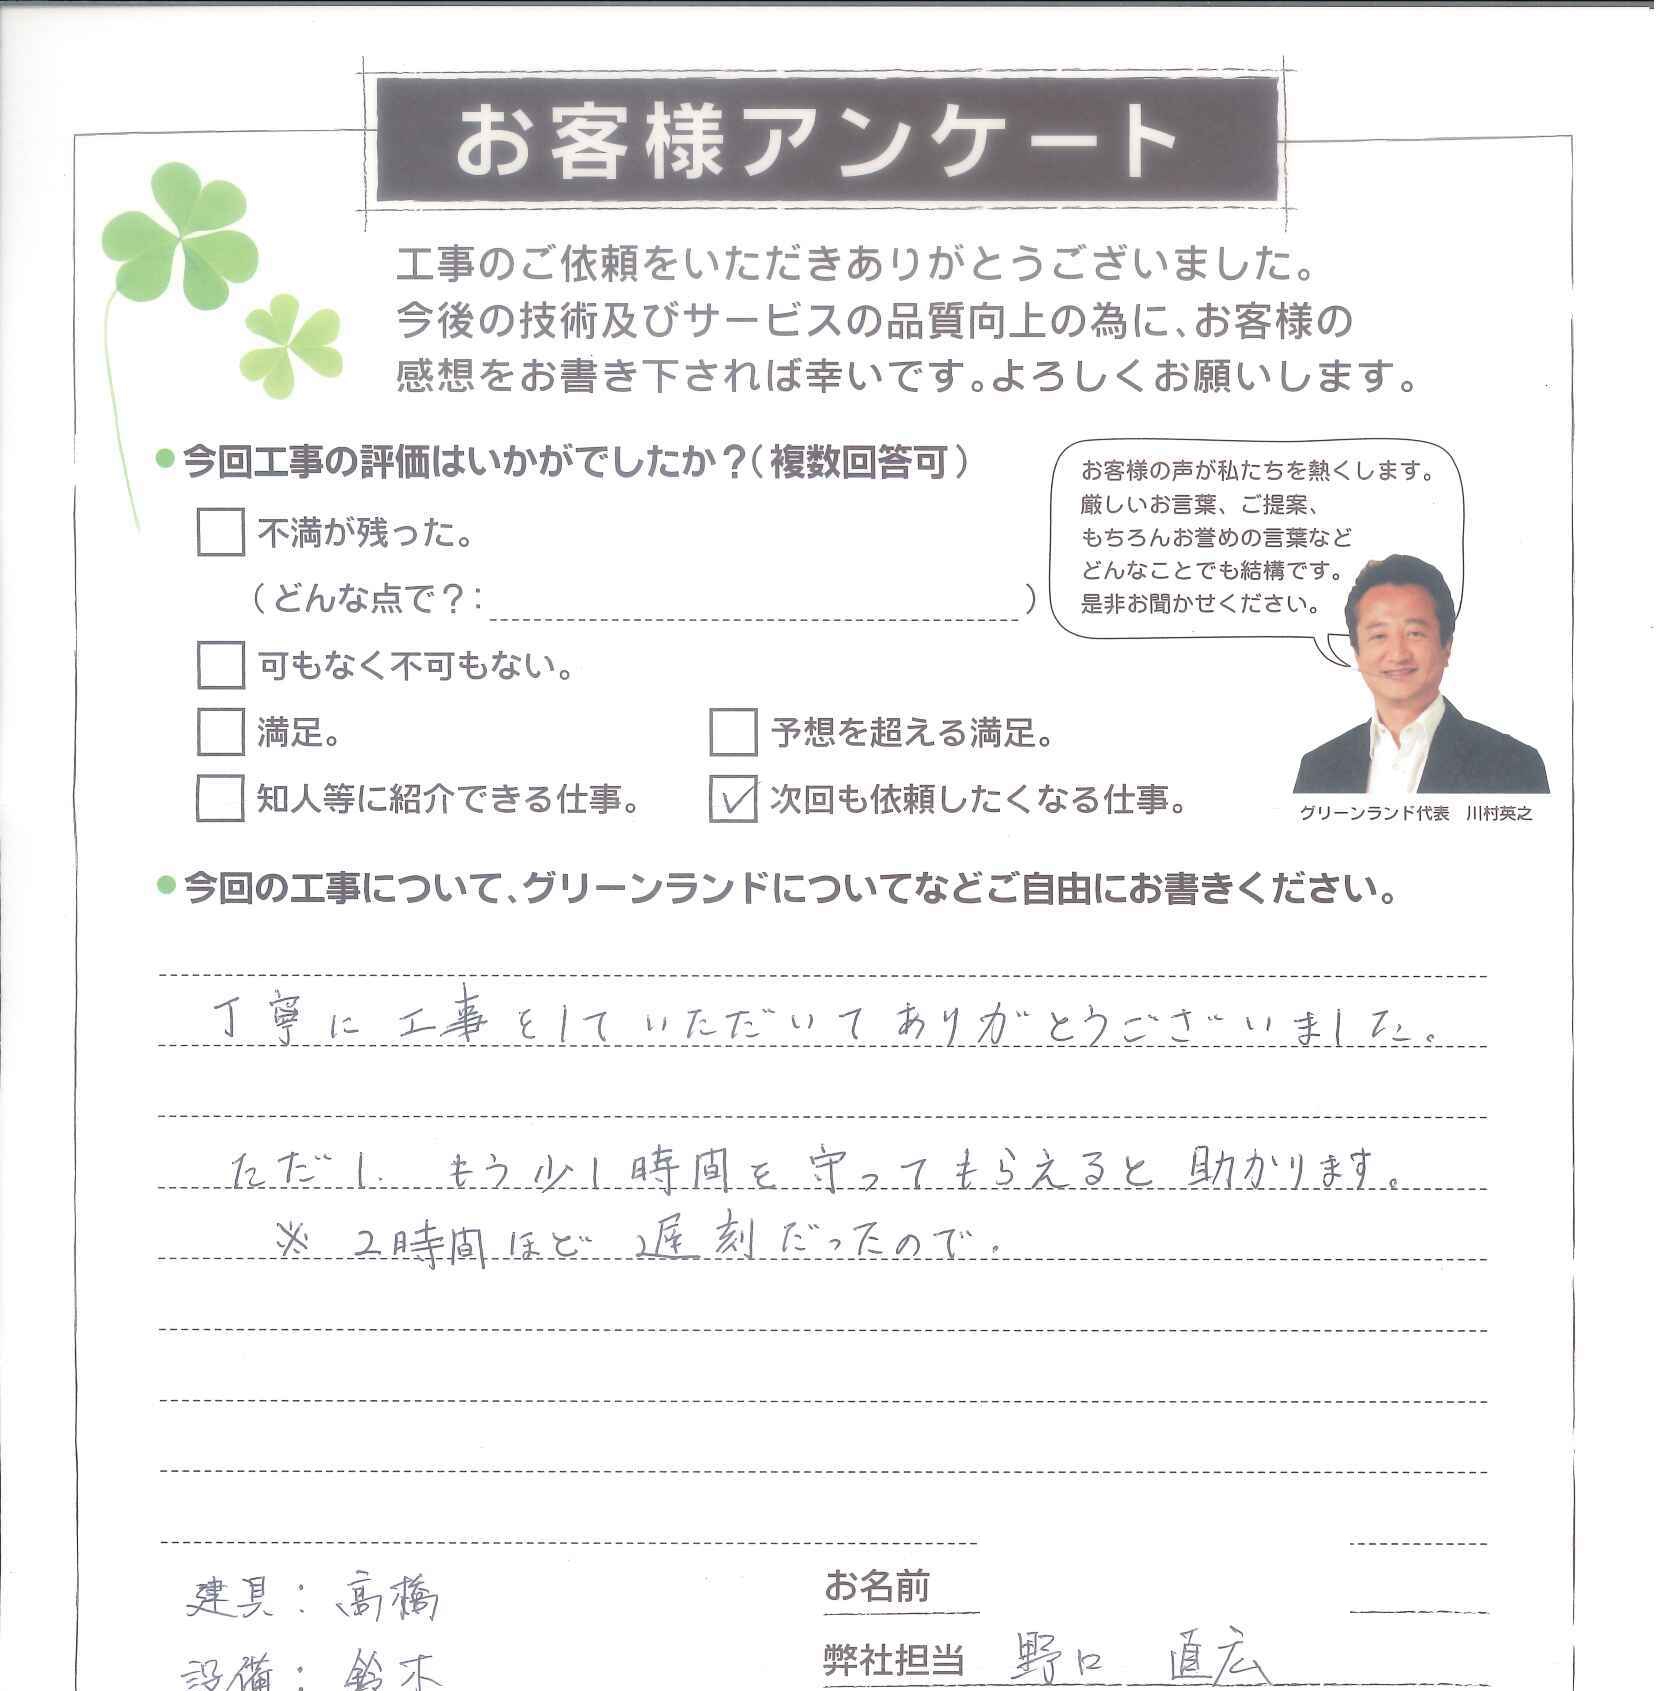 お客様アンケート
工事のご依頼をいただきありがとうございました。
今後の技術及びサービスの品質向上の為に、お客様の
感想をお書き下されば幸いです。よろしくお願いします。
●今回工事の評価はいかがでしたか？（複数回答可）
お客様の声が私たちを熱くします。
厳しいお言葉、ご提案、
もちろんお誉めの言葉など
どんなことでも結構です。
是非お聞かせください。
不満が残った。
（どんな点で？：　）
可もなく不可もない。
満足。
予想を超える満足。
知人等に紹介できる仕事。
次回も依頼したくなる仕事。
グリーンランド代表　川村英之
●今回の工事について、グリーンランドについてなどご自由にお書きください。
丁寧に工事をしていただいてありがとうございました。
ただし、もう少し時間を守ってもらえると助かります。
※ 2時間ほど遅刻だったので。
建具：高橋
お名前
設備：鈴木
弊社担当　野口　直広